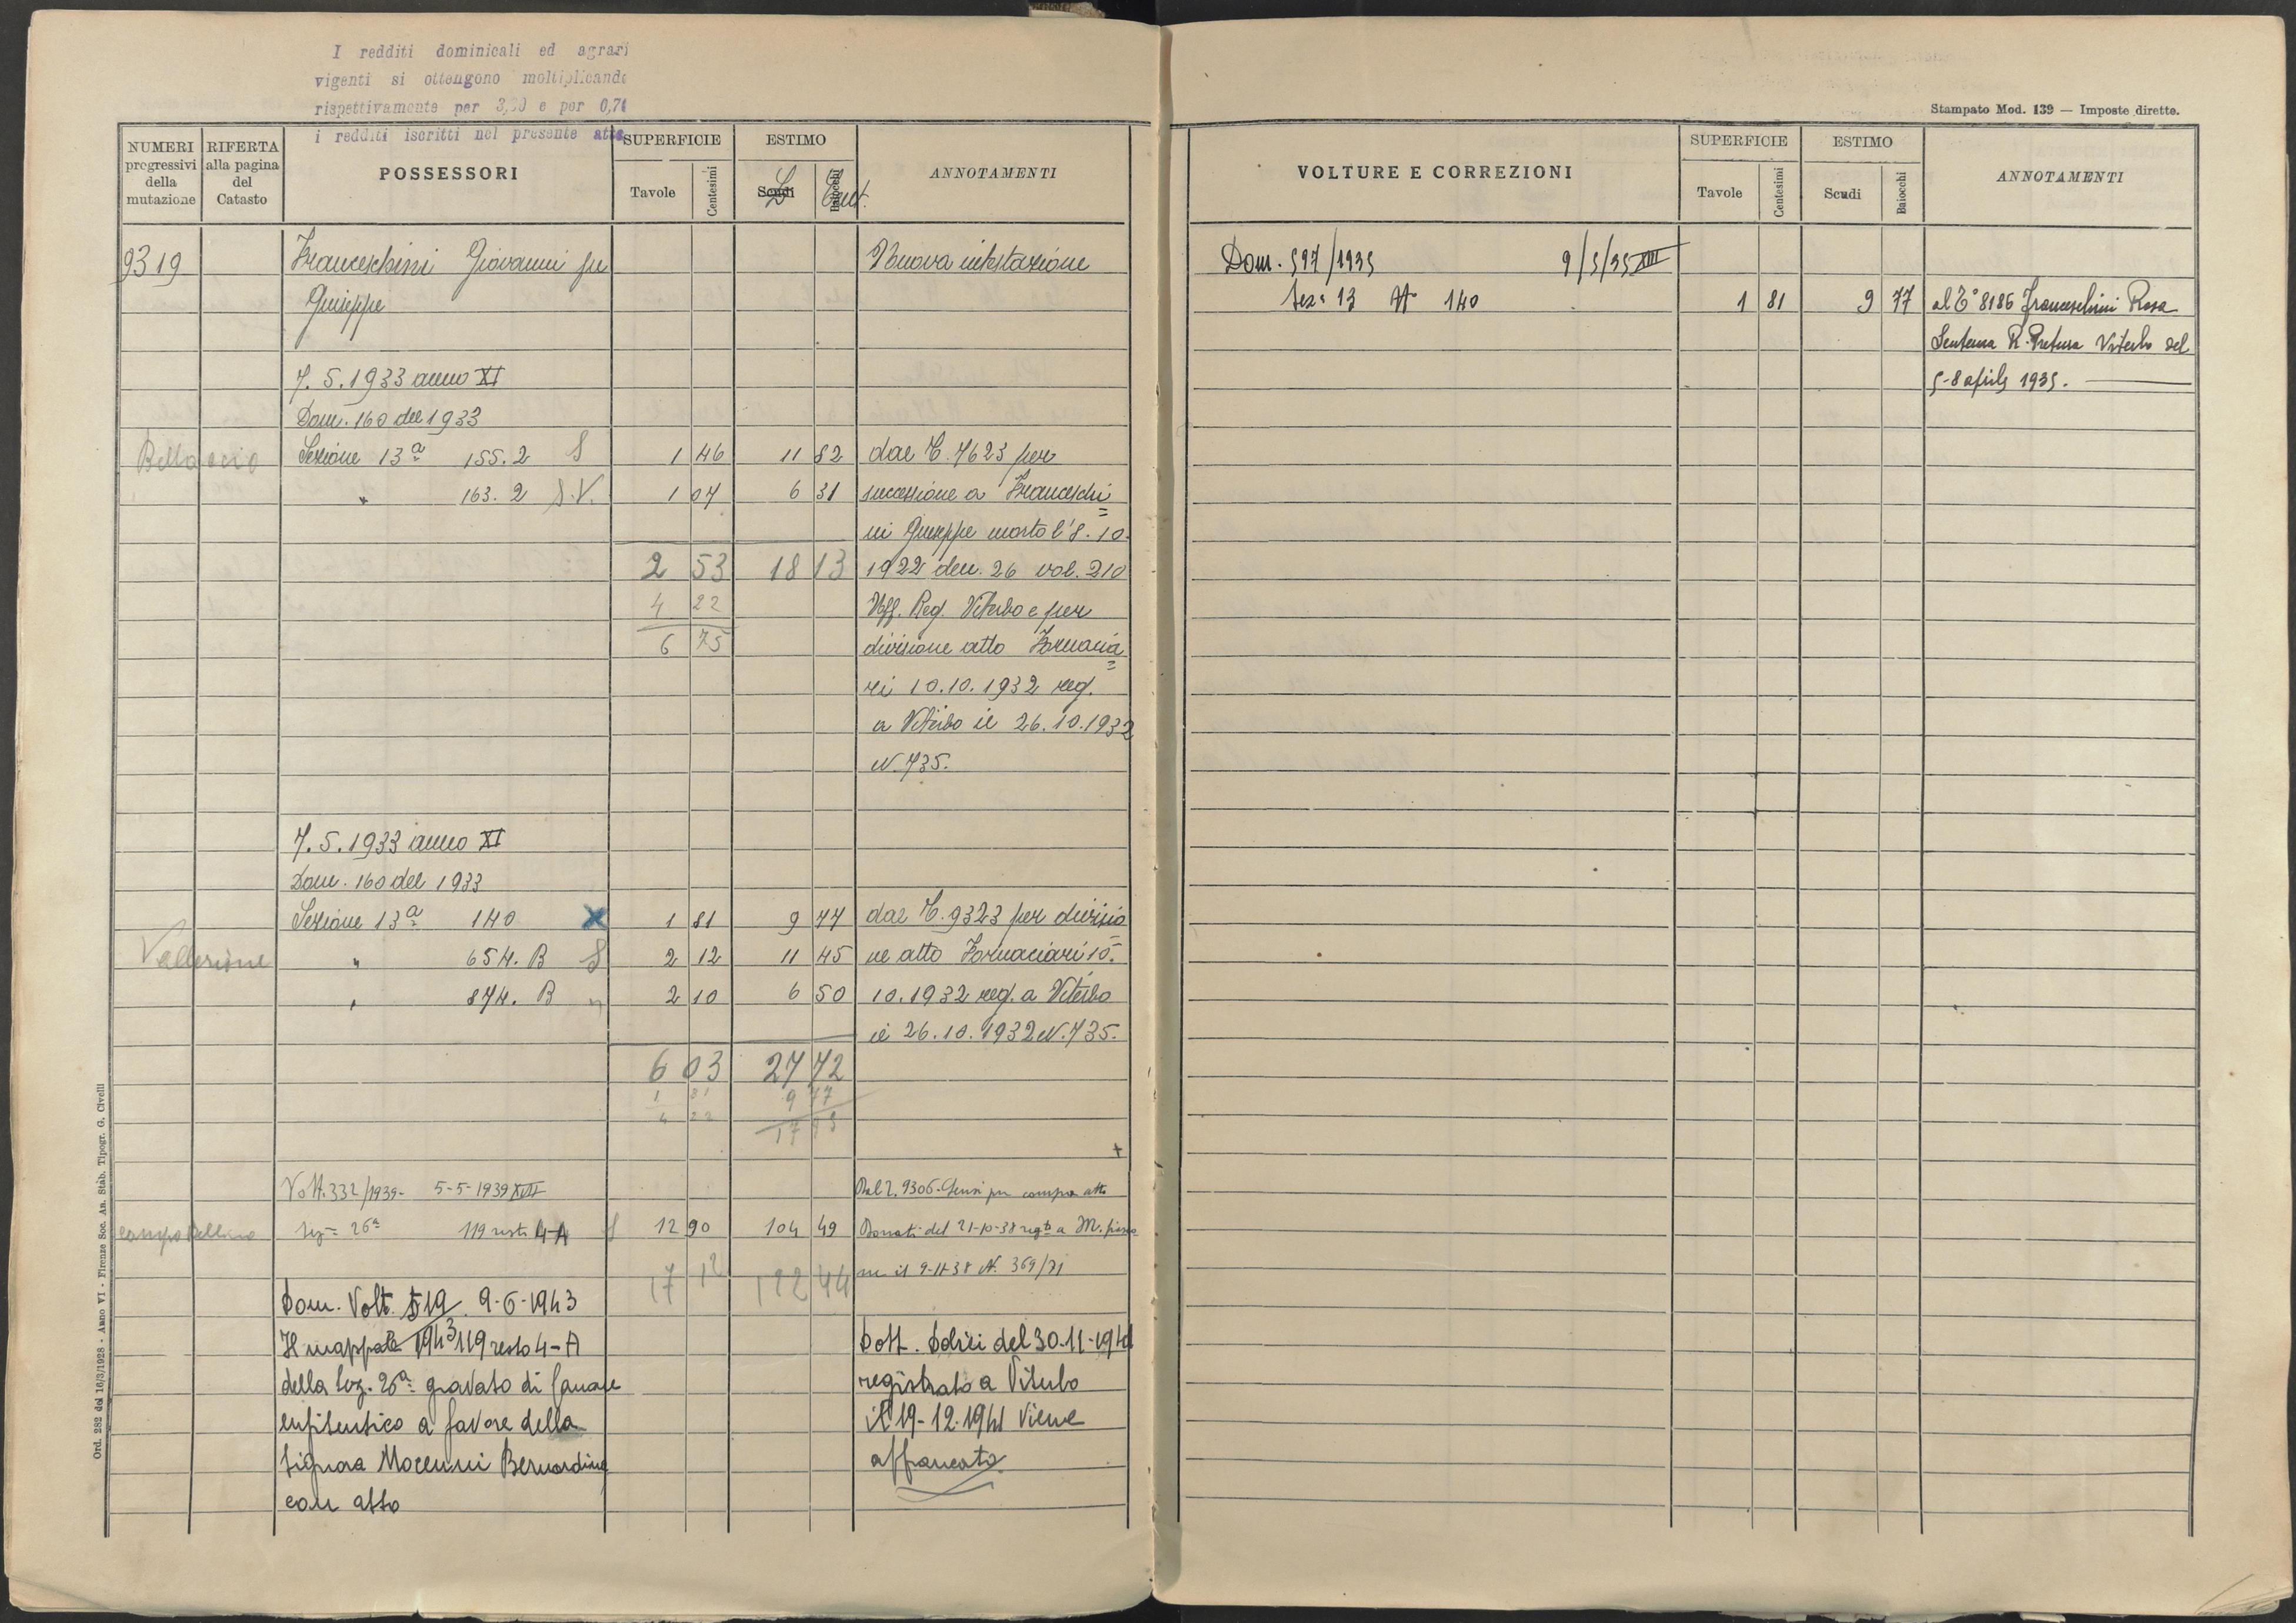 I redditi dominicali ed agrari
vigenti si ottengono moltiplicando
rispettivamente per 3,20 e per 0,74
i redditi iscritti nel presente atto
NUMERI progressivi della mutazione
RIFERTA alla pagina del Catasto
POSSESSORI
SUPERFICIE
Tavole Centesimi
ESTIMO
Scudi Baiocchi
L Cent.
ANNOTAMENTI
9319 Franceschini Giovanni fu Nuova intestazione
Giuseppe
7.5.1933 anno XI
Dom. 160 del 1933
Bellaccio Sezione 13ª 155.2 S 1 46 11 82 dal C. 7623 per
" 163.2 S.V. 1 07 6 31 successione a Franceschi=
ni Giuseppe morto l'8.10.
2 53 18 13 1922 den. 26 vol. 210
4 22 Uff. Reg. Viterbo e per
6 75 divisione atto Fornacia=
ri 10.10.1932 reg.
a Viterbo il 26.10.1932
N. 735.
7.5.1933 anno XI
Dom. 160 del 1933
Sezione 13ª 140 X 1 81 9 77 dal C. 9323 per divisio
Vallerione " 654.B S 2 12 11 45 ne atto Fornaciari 10.
" 874.B " 2 10 6 50 10.1932 reg. a Viterbo
il 26.10.1932 N. 735.
6 03 27 72
1 81 9 77
4 22 17 95
+
Volt. 332/1939- 5-5-1939 XVII Dal C. 9306 per compra atto
campo Sez= 26ª 119 resto 4-A S 12 90 104 49 Donati del 21-10-38 regto a M. fiasco
17 12 122 44 ne il 9-11-38 N. 369/71
Dom. Volt. 519 9-6-1943
1943
Il mappale 119 resto 4-A Dott. Oddi del 30.11-1941
della Sez. 26ª gravato di canone registrato a Viterbo
enfiteutico a favore della il 19-12-1941 viene
Signora Mocenni Bernardina affrancato
con atto
Ord. 282 del 16/3/1928 - Anno VI - Firenze Soc. An. Stab. Tipogr. G. Civelli
Stampato Mod. 139 — Imposte dirette.
VOLTURE E CORREZIONI
SUPERFICIE
Tavole Centesimi
ESTIMO
Scudi Baiocchi
ANNOTAMENTI
Dom. 597/1935 9/5/35 XIII
Sez= 13 N° 140 1 81 9 77 al C° 8186 Franceschini Rosa
Sentenza R. Pretura Viterbo del
5-8 aprile 1935.